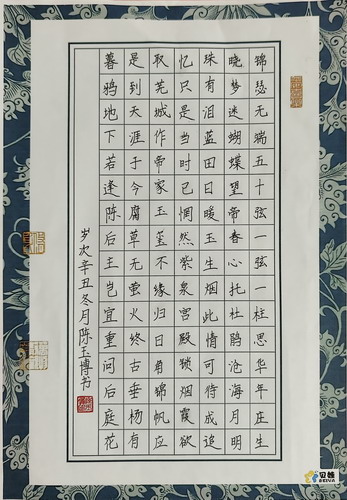 锦瑟无端五十弦一弦一柱思华年庄生
晓梦迷蝴蝶望帝春心托杜鹃沧海月明
珠有泪蓝田日暖玉生烟此情可待成追
忆只是当时已惘然紫泉宫殿锁烟霞欲
取芜城作帝家玉玺不缘归日角锦帆应
是到天涯于今腐草无萤火终古垂杨有
暮鸦地下若逢陈后主岂宜重问后庭花
岁次辛丑冬月陈玉博书